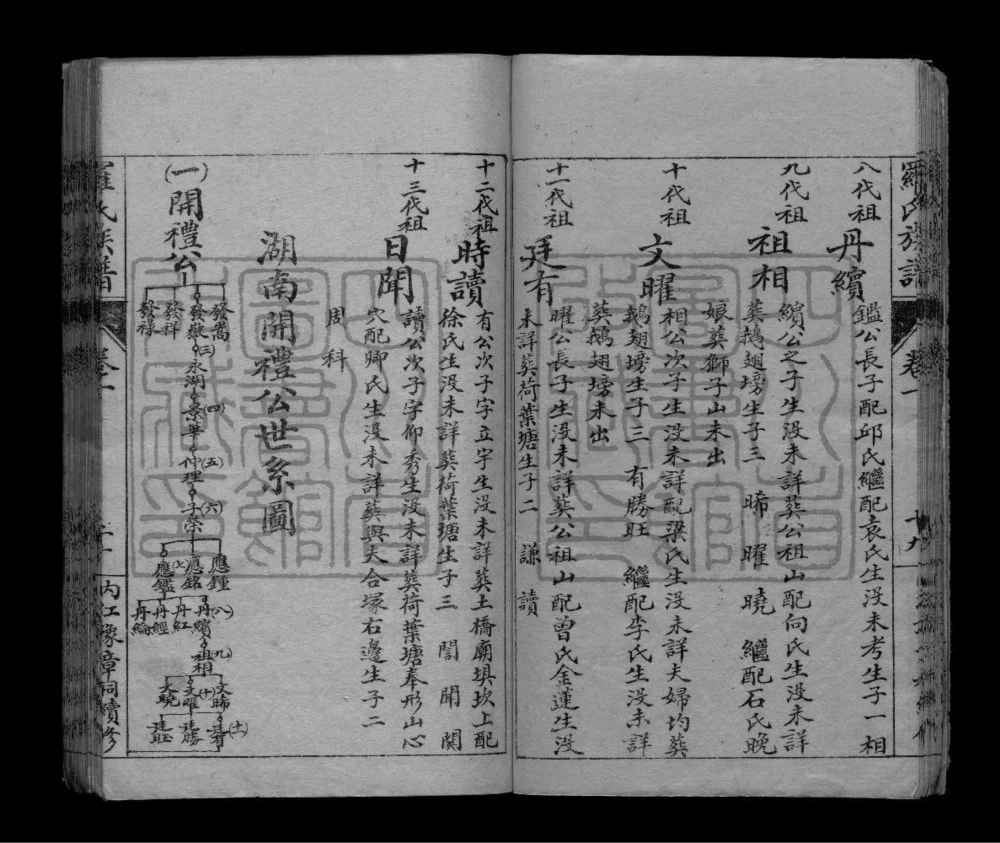 羅氏族譜
卷十
十九
八代祖
丹纘
鑑公長子配邱氏繼配袁氏生没未考生子一相
九代祖
祖相
纘公之子生没未詳葬公祖山配向氏生没未詳
葬鵝翅塝生子三 晞 曜 曉 繼配石氏晚
娘葬獅子山未出
十代祖
文曜
相公次子生没未詳配梁氏生没未詳夫婦均葬
鵝翅塝生子三 有勝旺 繼配李氏生没未詳
葬鵝翅塝未出
十一代祖
廷有
曜公長子生没未詳葬公祖山配曾氏金蓮生没
未詳葬荷葉塘生子二 謙 讀
十二代祖
時讀
有公次子字立宇生没未詳葬土橋廟埧坎上配
徐氏生没未詳葬荷葉塘生子三 誾 聞 闗
十三代祖
日聞
讀公次子字仰秀生没未詳葬荷葉塘奉形山心
穴配卿氏生没未詳葬與夫合塚右邊生子二
周 科
湖南開禮公世系圖
(一)開禮公
發嵩
發嶽
發祥
發祿
(三)永湖
(四)景華
(五)仲理
(六)子榮
應鍾
(七)應銘
應鑑
(八)丹纘
丹紅
丹經
丹綸
(九)祖相
文晞
(十)文曜
文曉
(十一)廷有
廷勝
廷旺
羅氏族譜
卷十
二十
内江豫章祠續修